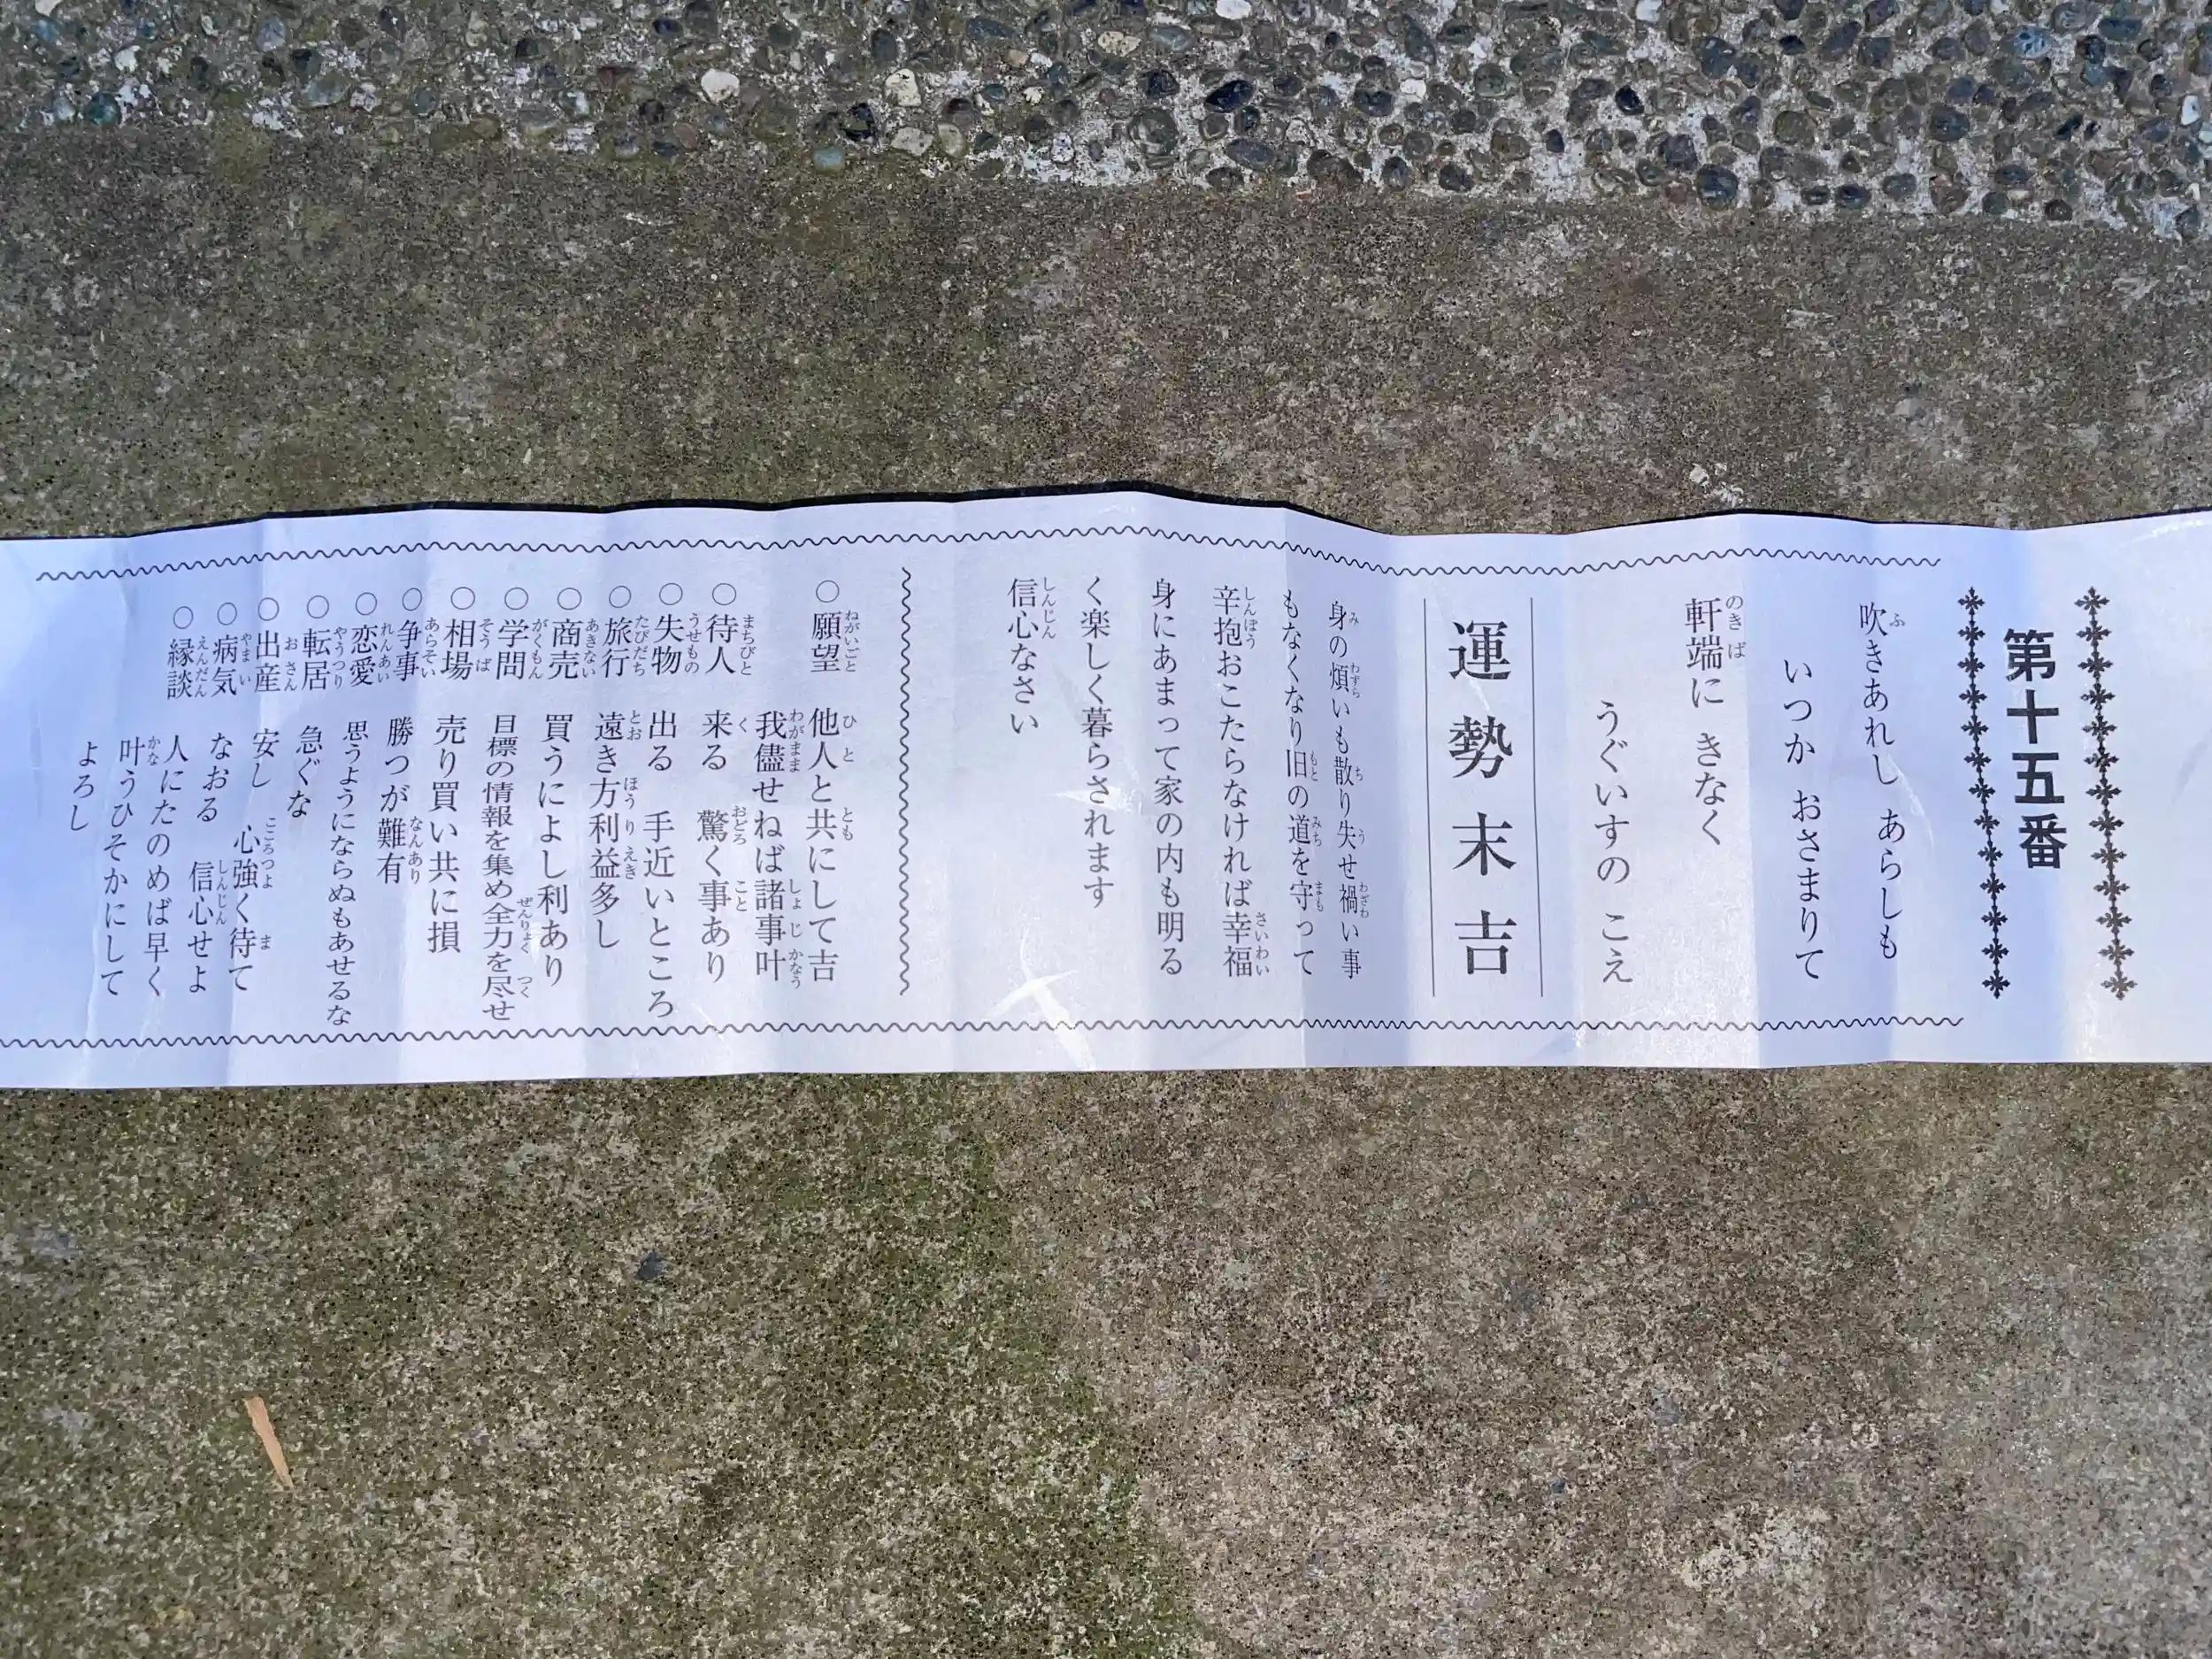 第十五番
吹きあれし あらしも
いつか おさまりて
軒端に きなく
うぐいすの こえ
運勢末吉
身の煩いも散り失せ禍い事
もなくなり旧の道を守って
辛抱おこたらなければ幸福
身にあまって家の内も明る
く楽しく暮らされます
信心なさい
○願望 他人と共にして吉
我儘せねば諸事叶
○待人 来る 驚く事あり
○失物 出る 手近いところ
○旅行 遠き方利益多し
○商売 買うによし利あり
○学問 目標の情報を集め全力を尽せ
○相場 売り買い共に損
○争事 勝つが難有
○恋愛 思うようにならぬもあせるな
○転居 急ぐな
○出産 安し 心強く待て
○病気 なおる 信心せよ
○縁談 人にたのめば早く
叶うひそかにして
よろし